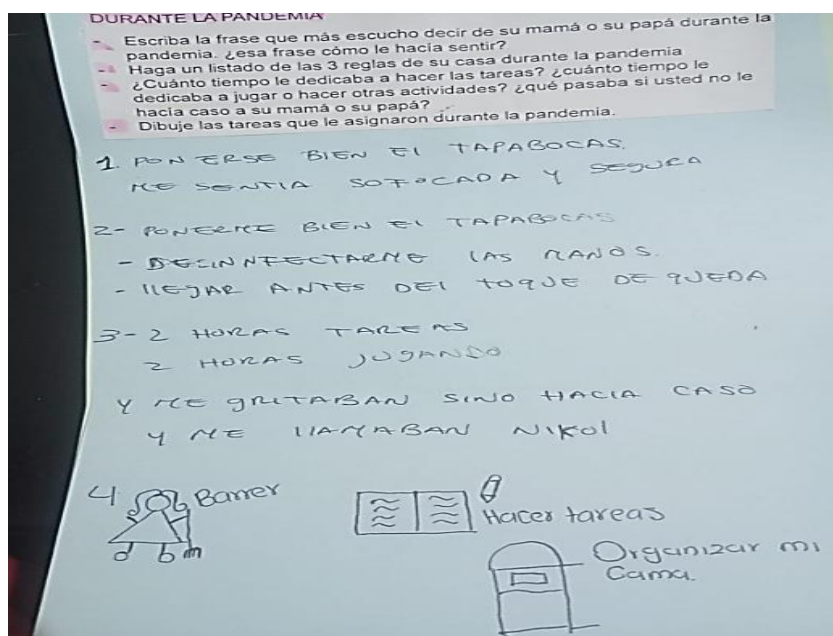 DURANTE LA PANDEMIA
- Escriba la frase que más escucho decir de su mamá o su papá durante la
pandemia. ¿esa frase cómo le hacía sentir?
- Haga un listado de las 3 reglas de su casa durante la pandemia
- ¿Cuánto tiempo le dedicaba a hacer las tareas? ¿cuánto tiempo le
dedicaba a jugar o hacer otras actividades? ¿qué pasaba si usted no le
hacía caso a su mamá o su papá?
- Dibuje las tareas que le asignaron durante la pandemia.
1. PONERSE BIEN El TAPABOCAS.
ME SENTIA SOFOCADA Y SEGURA
2- PONERME BIEN El TAPABOCAS
- DESINNFECTARME LAS MANOS.
- llEJAR ANTES DEl TOQUE DE QUEDA
3- 2 HORAS TAREAS
2 HORAS JUGANDO
Y ME GRITABAN SINO HACIA CASO
Y ME llAMABAN NIKOl
4 Barrer
Hacer tareas
Organizar mi
Cama.